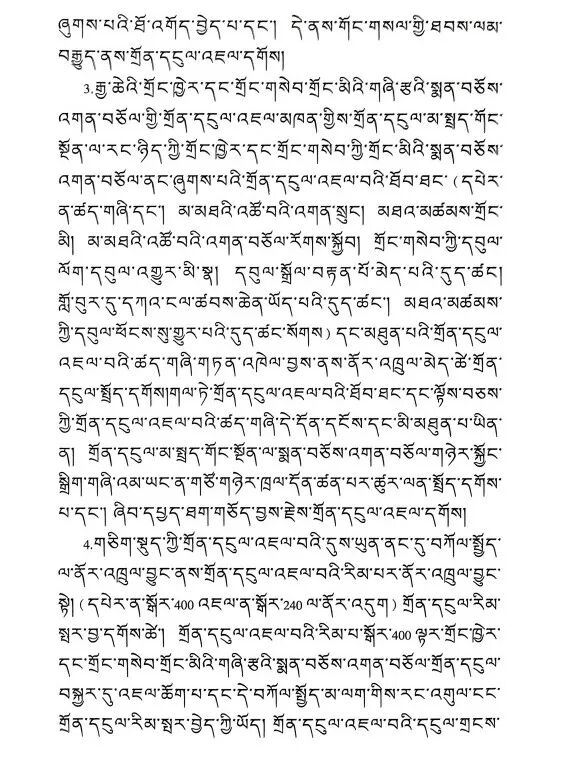 ཞུགས་པའི་ཐོ་འགོད་བྱེད་པ་དང་། དེ་ནས་གོང་གསལ་གྱི་ཐབས་ལམ་
བརྒྱུད་ནས་གྲོན་དངུལ་འཇལ་དགོས།
3.རྒྱ་ཆེའི་གྲོང་ཁྱེར་དང་གྲོང་གསེབ་གྲོང་མིའི་གཞི་རྩའི་སྨན་བཅོས་
འགན་བཅོལ་གྱི་གྲོན་དངུལ་འཇལ་མཁན་གྱིས་གྲོན་དངུལ་མ་སྤྲད་གོང་
སྔོན་ལ་རང་ཉིད་ཀྱི་གྲོང་ཁྱེར་དང་གྲོང་གསེབ་ཀྱི་གྲོང་མིའི་སྨན་བཅོས་
འགན་བཅོལ་ནང་ཞུགས་པའི་གྲོན་དངུལ་འཇལ་བའི་ཐོབ་ཐང་ (དཔེར་
ན་ཚད་གཞི་དང་། མ་མཐའི་འཚོ་བའི་འགན་སྲུང། མཐའ་མཚམས་གྲོང་
མི། མ་མཐའི་འཚོ་བའི་འགན་བཅོལ་རོགས་སྐྱོབ། གྲོང་གསེབ་ཀྱི་དབུལ་
ལོག་དབུལ་འགྱུར་མི་སྣ། དབུལ་སྒྲོལ་བརྟན་པོ་མེད་པའི་དུད་ཚང།
གློ་བུར་དུ་དཀའ་ངལ་ཚབས་ཆེན་ཡོད་པའི་དུད་ཚང་། མཐའ་མཚམས་
ཀྱི་དབུལ་ཕོངས་སུ་གྱུར་པའི་དུད་ཚང་སོགས) དང་མཐུན་པའི་གྲོན་དངུལ་
འཇལ་བའི་ཚད་གཞི་གཏན་འཁེལ་བྱས་ནས་ནོར་འཁྲུལ་མེད་ཚེ་གྲོན་
དངུལ་སྤྲོད་དགོས།གལ་ཏེ་གྲོན་དངུལ་འཇལ་བའི་ཐོབ་ཐང་དང་ལྟོས་བཅས་
ཀྱི་གྲོན་དངུལ་འཇལ་བའི་ཚད་གཞི་དེ་དོན་དངོས་དང་མི་མཐུན་པ་ཡིན་
ན། གྲོན་དངུལ་མ་སྤྲད་གོང་སྔོན་ལ་སྨན་བཅོས་འགན་བཅོལ་གཉེར་སྐྱོང་
སྒྲིག་གཞི་འམ་ཡང་ན་གཙོ་གཉེར་ཁྲལ་དོན་ཚན་པར་ཚུར་ལན་སྤྲོད་དགོས་
པ་དང་། ཞིབ་དཔྱད་ཐག་གཅོད་བྱས་རྗེས་གྲོན་དངུལ་འཇལ་དགོས།
4.གཅིག་སྡུད་ཀྱི་གྲོན་དངུལ་འཇལ་བའི་དུས་ཡུན་ནང་དུ་བཀོལ་སྤྱོད་
ལ་ནོར་འཁྲུལ་བྱུང་ནས་གྲོན་དངུལ་འཇལ་བའི་རིམ་པར་ནོར་འཁྲུལ་བྱུང་
སྟེ། (དཔེར་ན་སྒོར་400 འཇལ་ན་སྒོར་240 ལ་ནོར་འདུག) གྲོན་དངུལ་རིམ་
སྤར་བྱ་དགོས་ཚེ། གྲོན་དངུལ་འཇལ་བའི་རིམ་པ་སྒོར་400 ལྟར་གྲོང་ཁྱེར་
དང་གྲོང་གསེབ་གྲོང་མིའི་གཞི་རྩའི་སྨན་བཅོས་འགན་བཅོལ་གྲོན་དངུལ་
བསྐྱར་དུ་འཇལ་ཆོག་པ་དང་དེ་བཀོལ་སྤྱོད་མ་ལག་གིས་རང་འགུལ་ངང་
གྲོན་དངུལ་རིམ་སྤར་བྱེད་ཀྱི་ཡོད། གྲོན་དངུལ་འཇལ་བའི་དངུལ་གྲངས་